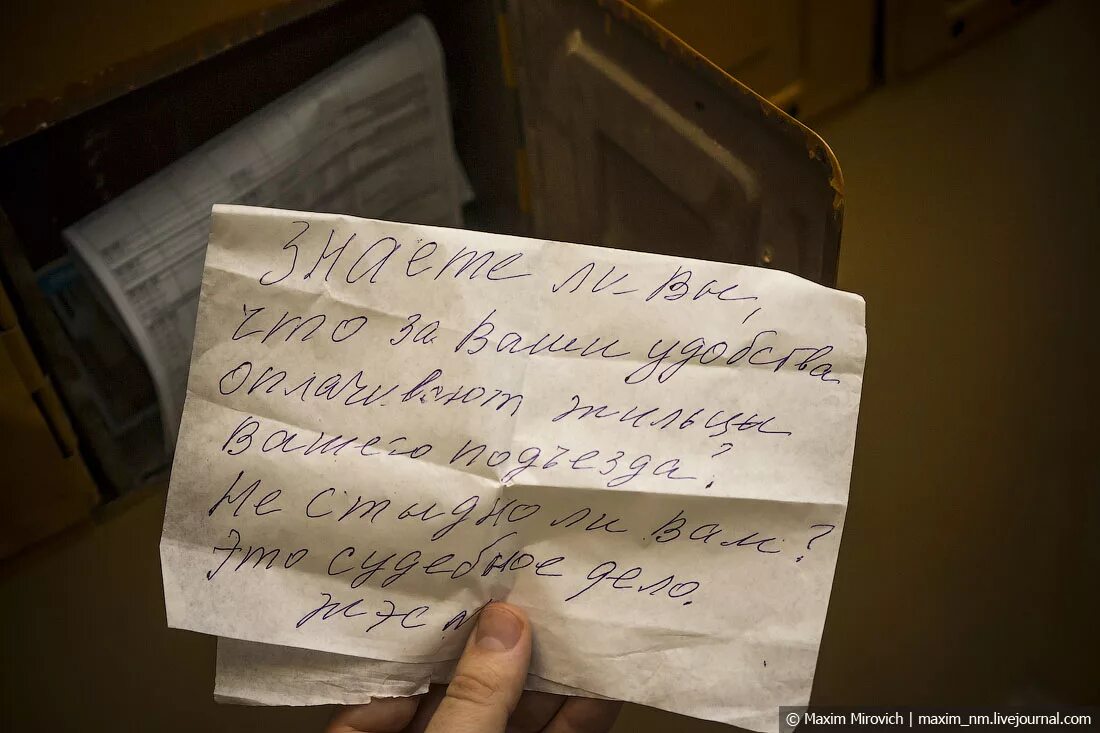 Знаете ли Вы,
что за Ваши удобства
оплачивают жильцы
Вашего подъезда?
Не стыдно ли Вам?
Это судебное дело.
© Maxim Mirovich | maxim_nm.livejournal.com